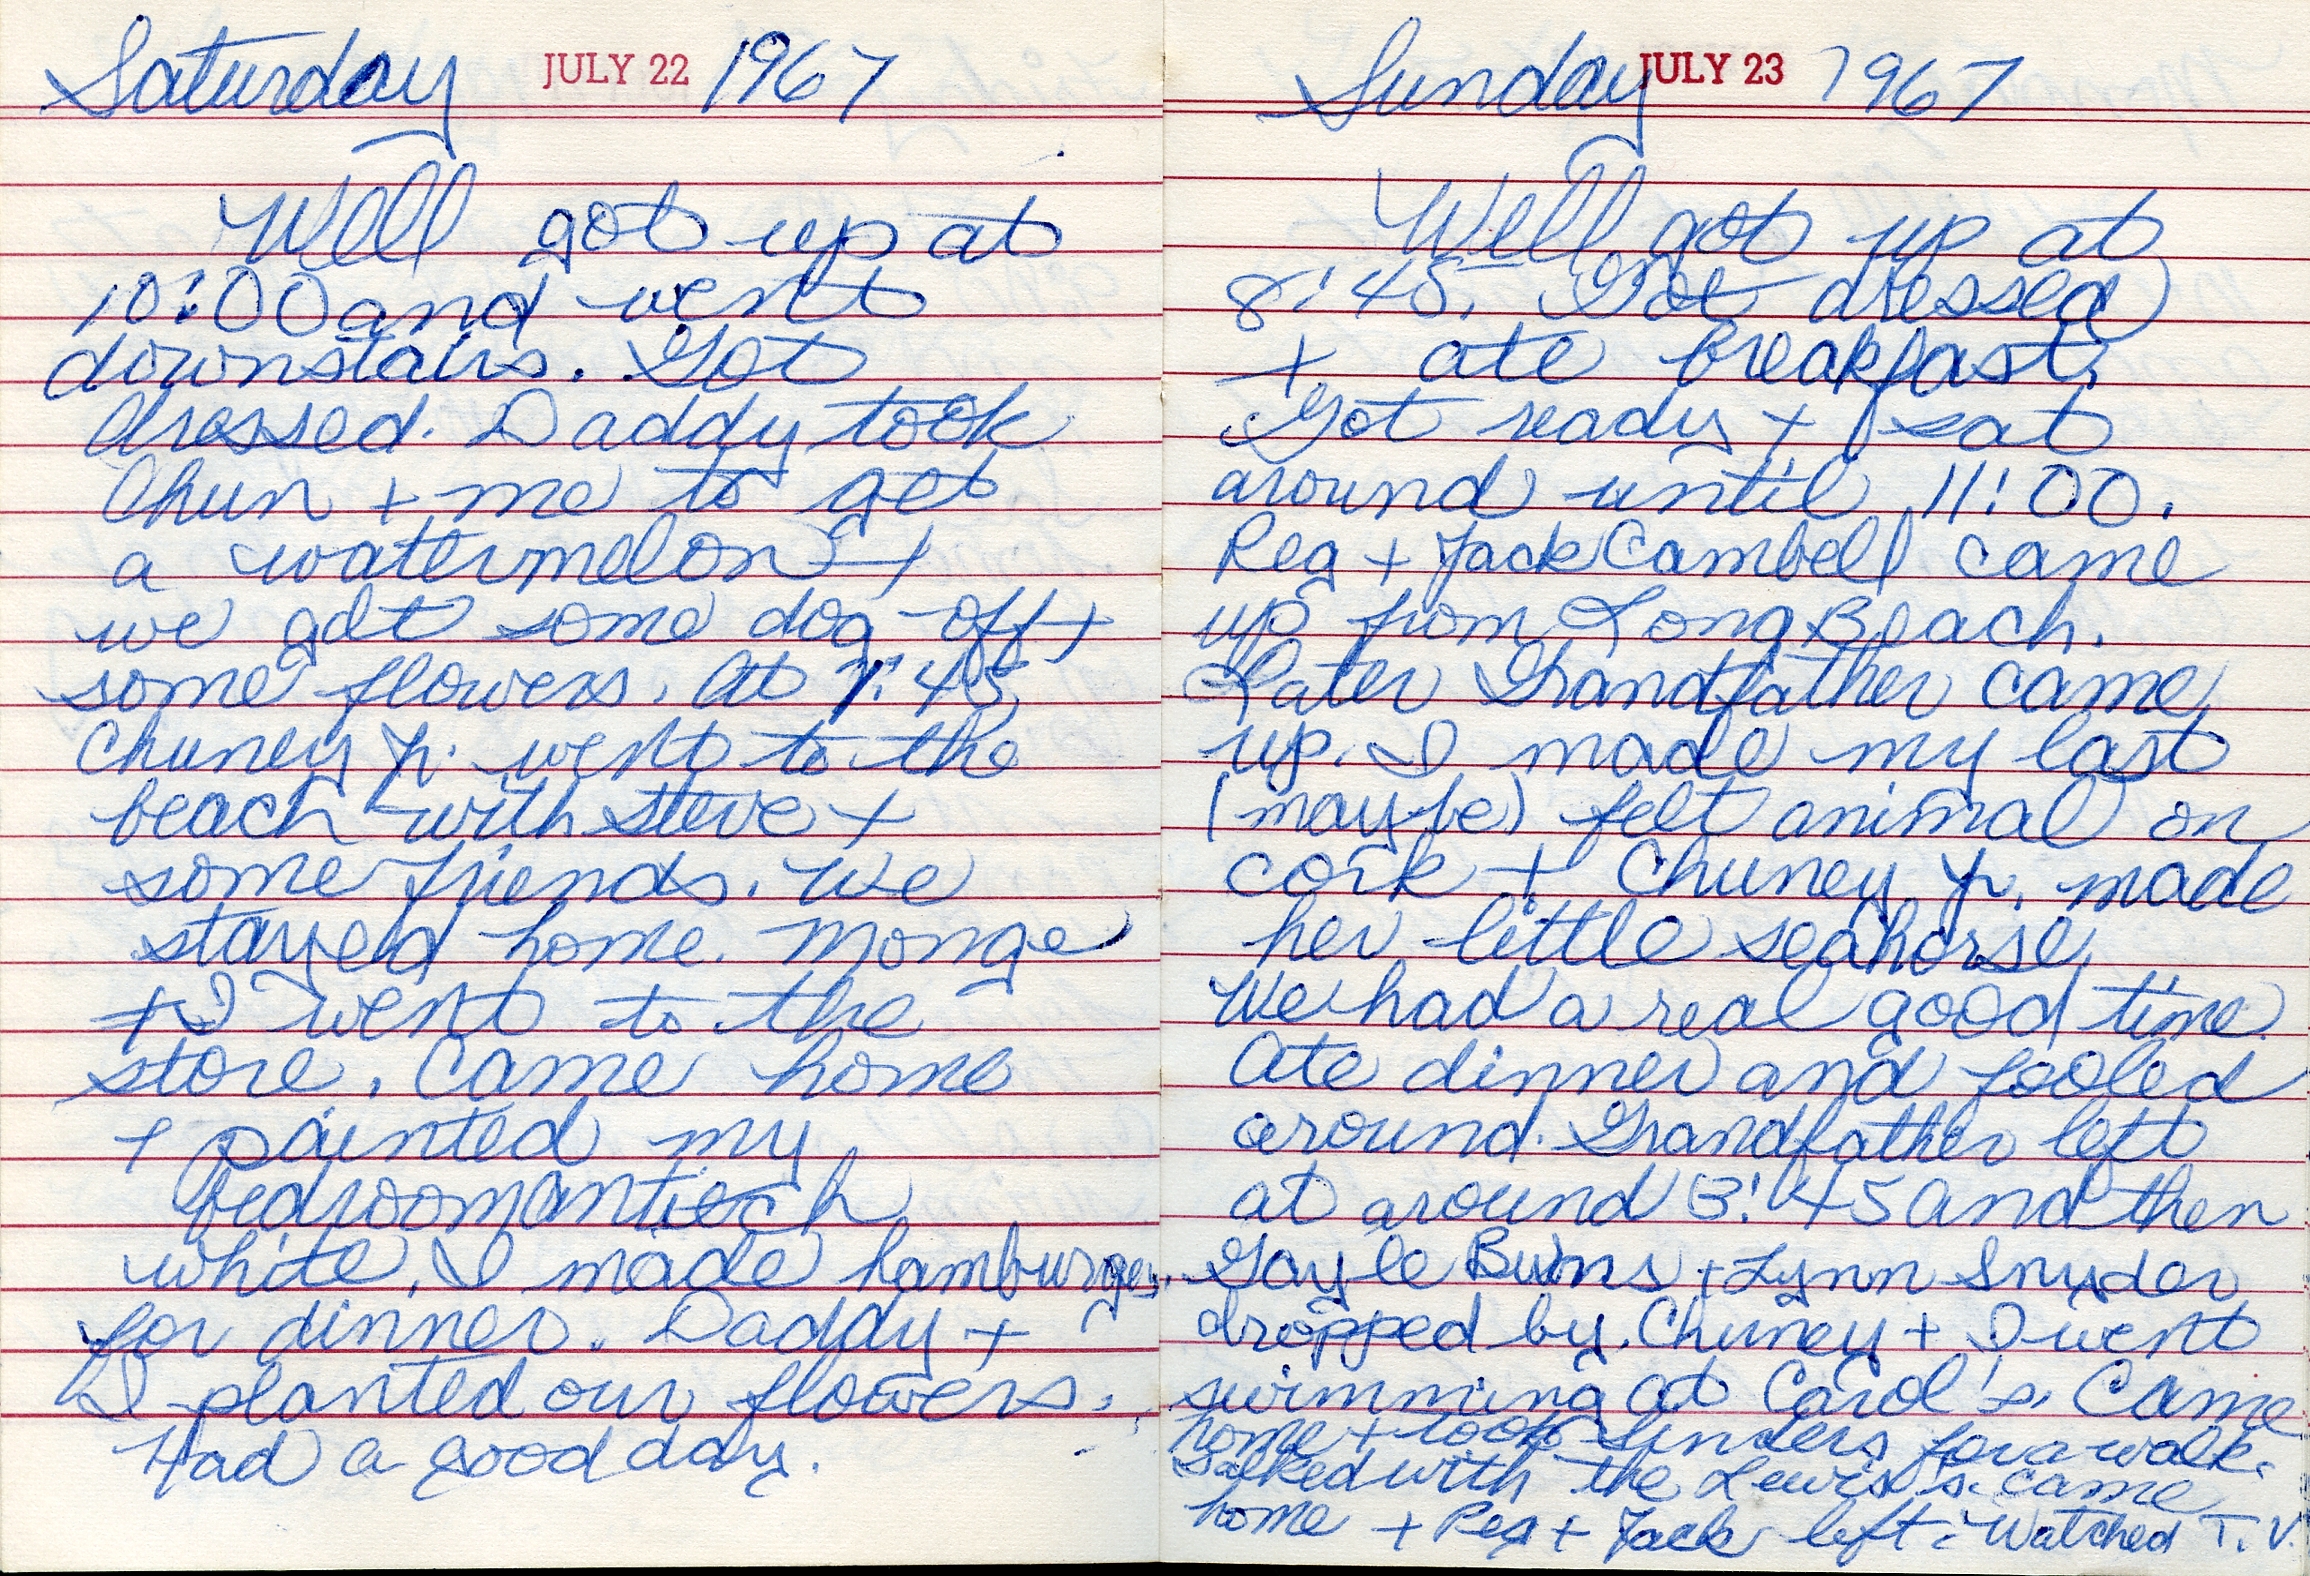 Saturday JULY 22 1967
Well got up at
10:00 and went
downstairs. Got
dressed. Daddy took
Chun + me to get
a watermelon +
we got some dog-off +
some flowers. At 1:45
Chuney Jr. went to the
beach with Steve +
some friends. We
stayed home. Monge
+ I went to the
store. Came home
+ painted my
bedroom antiech
white. I made hamburgers
for dinner. Daddy +
I planted our flowers.
Had a good day.
Sunday JULY 23 1967
Well got up at
8:45. Got dressed
+ ate breakfast.
Got ready + sat
around until 11:00.
Reg + Jack Cambell came
up from Long Beach.
Later Grandfather came
up. I made my last
(maybe) felt animal on
cork + Chuney Jr. made
her little seahorse.
We had a real good time.
Ate dinner and fooled
around. Grandfather left
at around 3:45 and then
Gayle Burns + Lynn Snyder
dropped by. Chuney + I went
swimming at Carol's. Came
home + took for a walk.
talked with the Lewis's. came
home + Reg + Jack left. Watched T.V.